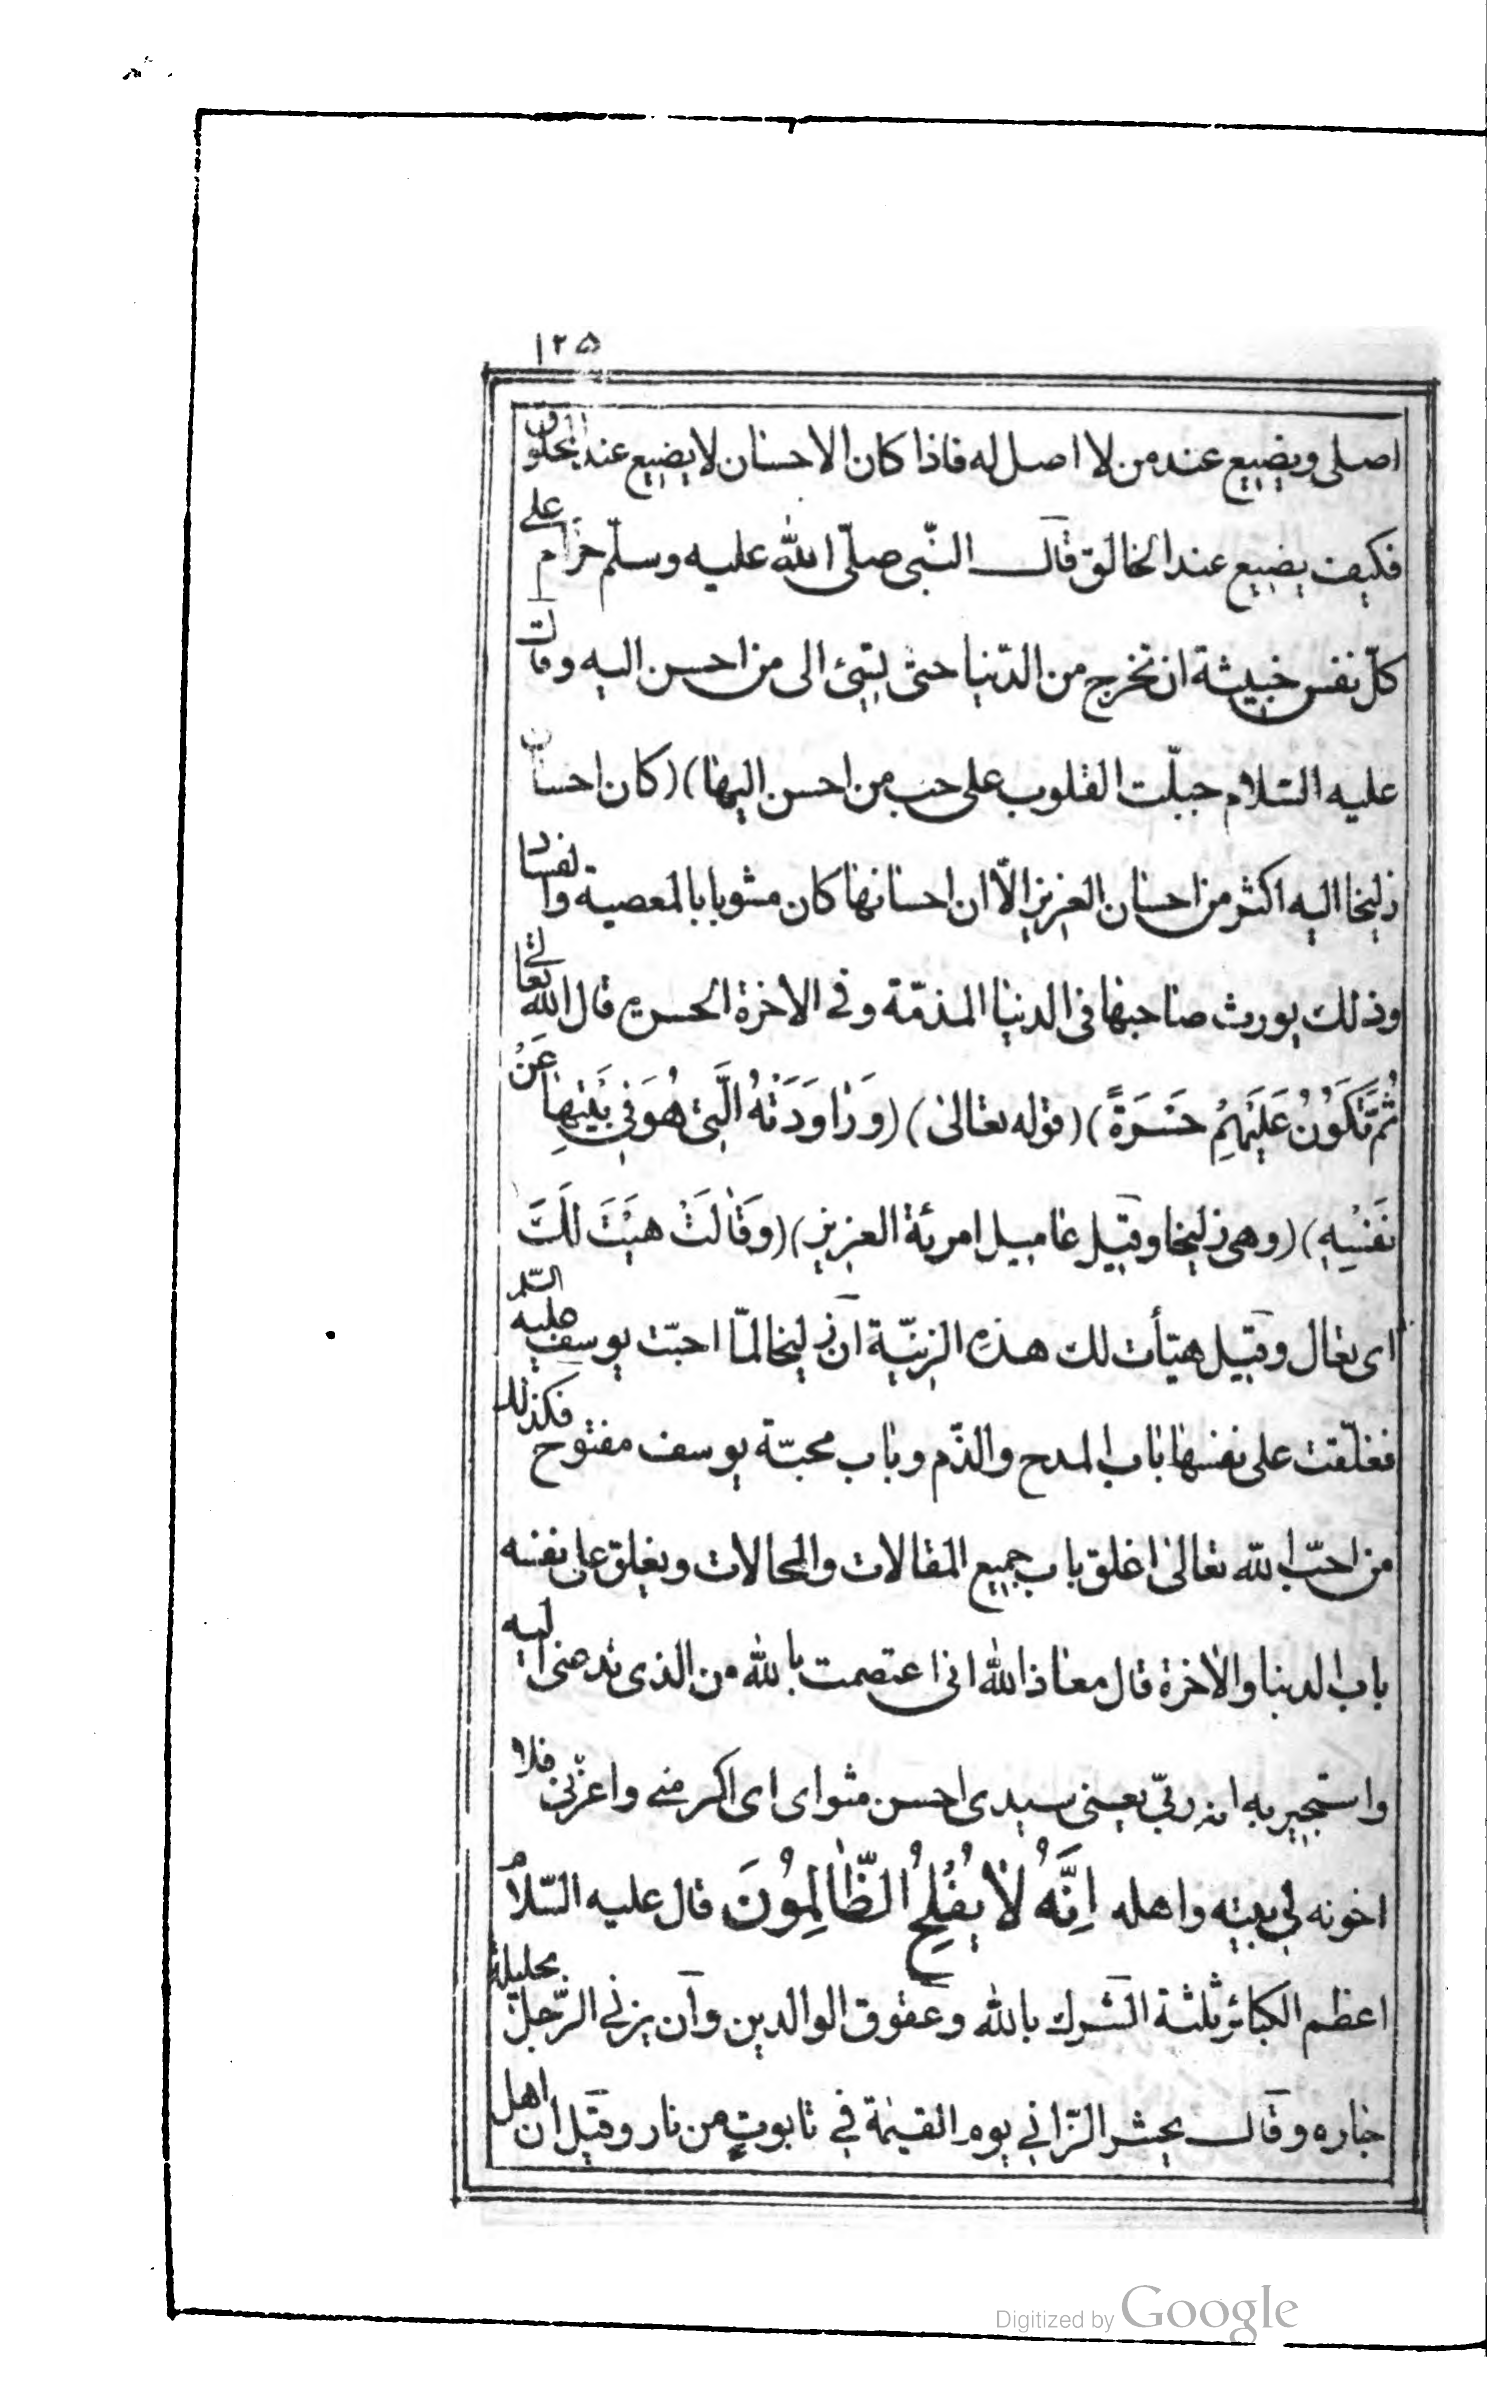 ١٢۵
اصلى ويضيع عند من لا اصل له فاذا كان الاحسان لا يضيع عند المخلوق
فكيف يضيع عند الخالق قال النّبى صلّى الله عليه وسلّم حرام على
كلّ نفس خبيثة ان تخرج من الدّنيا حتى يتبىٔ الى من احسن اليه وقال
عليه السّلام جبلّت القلوب على حب من احسن اليها) (كان احسان
زليخا اليه اكثر من احسان العزيز الّا ان احسانها كان مشوبا بالمعصية والفساد
وذلك يورث صاحبها فى الدنيا المذمّة وفى الاخرة الحسرة قال الله تعالى
ثُمَّ تَكُونُ عَلَيْهِمْ حَسْرَةً) (قوله تعالى) (وَرٰاوَدَتْهُ الَّتِى هُوَ فِى بَيْتِهٰا عَنْ
نَفْسِهِ) (وهى زليخا وقيل غاميل امرئة العزيز) (وَقٰالَتْ هَيْتَ لَكَ
اى تعال وقيل هيّأت لك هذه الزينة ان زليخا لمّا احبّت يوسف عليه السّلم
فغلّقت على نفسها باب المدح والذّم وباب محبّة يوسف مفتوح فكذلك
من احبّ الله تعالى اغلق باب جميع المقالات والمحالات ويغلق على نفسه
باب الدنيا والاخرة قال معاذ الله انى اعتصمت بالله من الذى تدعنى اليه
واستجير به انه ربّى يعنى سيدى احسن مثواى اى اكرمنى واعزّنى فلا
اخونه فى بيته واهله اِنَّهُ لٰا يُفْلِحُ الظّٰالِمُونَ قال عليه السّلام
اعظم الكبائر ثلثة الشرك بالله وعقوق الوالدين وان يزنى الرّجل بحليلة
جاره وقال يحشر الزّانى يوم القيٰمة فى تابوتٍ من نار وقيل ان اهل
Digitized by Google